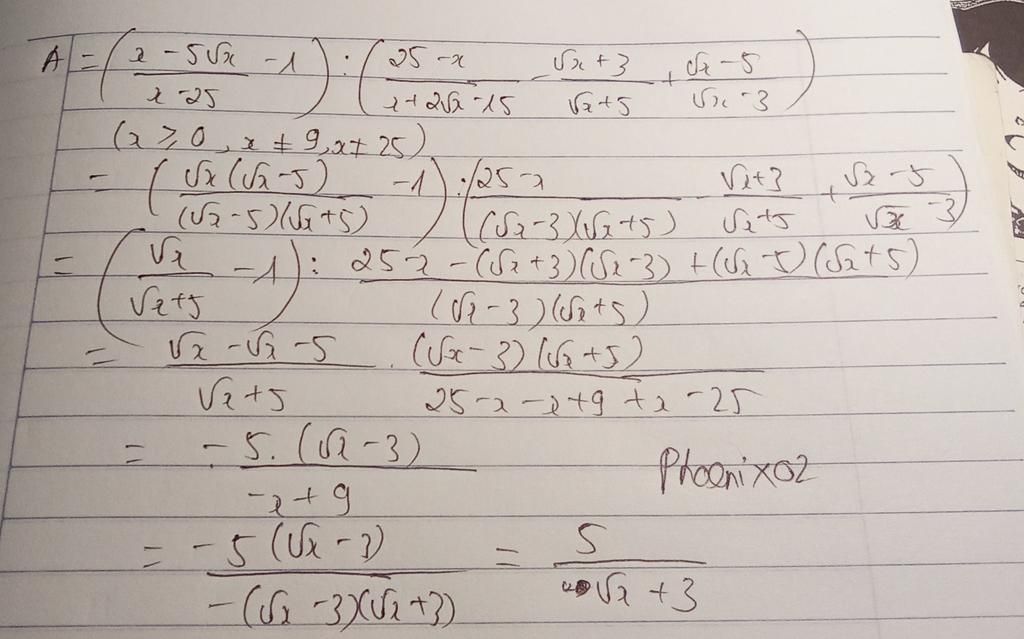 A = ( (x - 5√x)/(x - 25) - 1 ) : ( (25 - x)/(x + 2√x - 15) - (√x + 3)/(√x + 5) + (√x - 5)/(√x - 3) )
(x ≥ 0, x ≠ 9, x ≠ 25)
= ( √x(√x - 5)/((√x - 5)(√x + 5)) - 1 ) : ( (25 - x)/((√x - 3)(√x + 5)) - (√x + 3)/(√x + 5) + (√x - 5)/(√x - 3) )
= ( √x/(√x + 5) - 1 ) : (25 - x - (√x + 3)(√x - 3) + (√x - 5)(√x + 5))/((√x - 3)(√x + 5))
= (√x - √x - 5)/(√x + 5) . ((√x - 3)(√x + 5))/(25 - x - x + 9 + x - 25)
= (-5.(√x - 3))/(-x + 9)
Phoenix02
= (-5(√x - 3))/(-(√x - 3)(√x + 3)) = 5/(√x + 3)